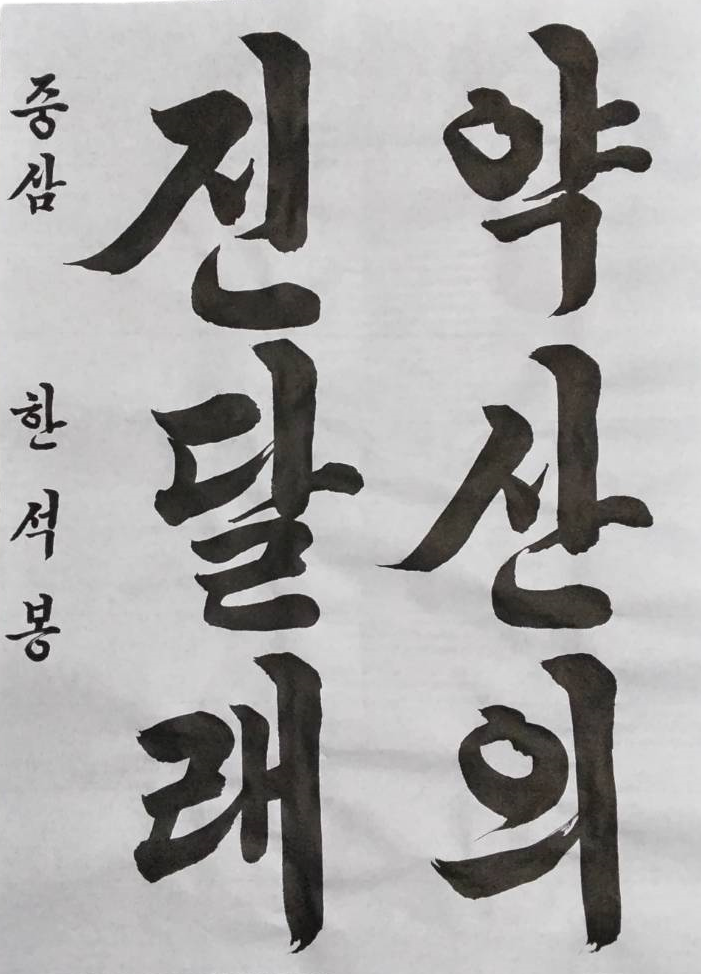 약산의
진달래
중삼 한석봉